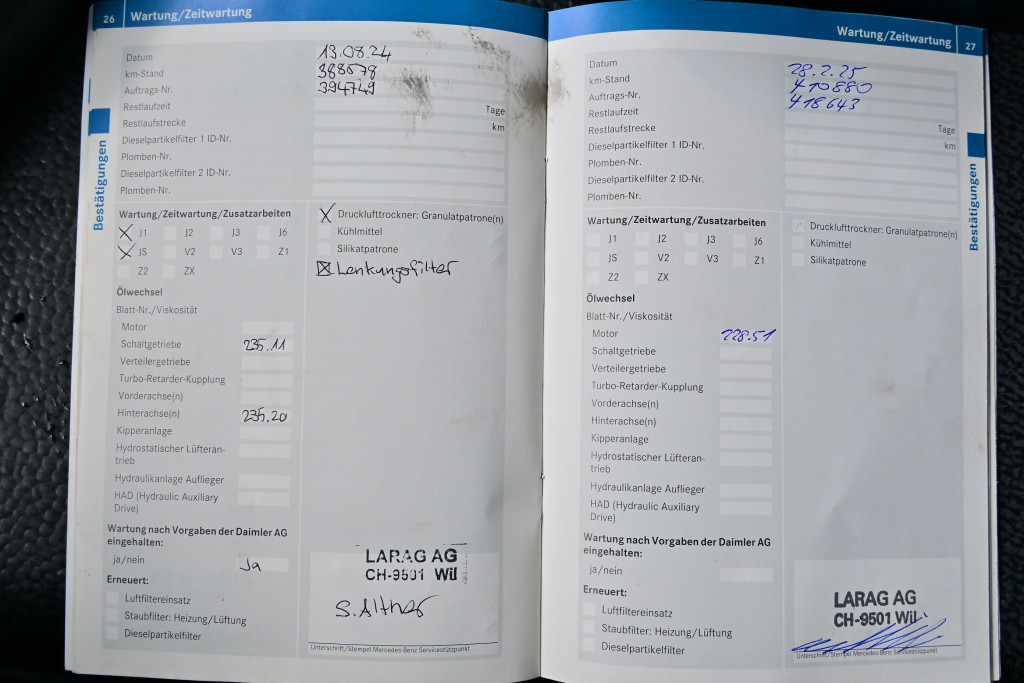 26 Wartung/Zeitwartung
Datum 13.08.24
km-Stand 388578
Auftrags-Nr. 394749
Restlaufzeit Tage
Restlaufstrecke km
Dieselpartikelfilter 1 ID-Nr.
Plomben-Nr.
Dieselpartikelfilter 2 ID-Nr.
Plomben-Nr.
Bestätigungen
Wartung/Zeitwartung/Zusatzarbeiten
X J1 J2 J3 J6
X JS V2 V3 Z1
Z2 ZX
X Drucklufttrockner: Granulatpatrone(n)
Kühlmittel
Silikatpatrone
X Lenkungsfilter
Ölwechsel
Blatt-Nr./Viskosität
Motor
Schaltgetriebe 235.11
Verteilergetriebe
Turbo-Retarder-Kupplung
Vorderachse(n)
Hinterachse(n) 235.20
Kipperanlage
Hydrostatischer Lüfteran-
trieb
Hydraulikanlage Auflieger
HAD (Hydraulic Auxiliary
Drive)
Wartung nach Vorgaben der Daimler AG
eingehalten:
ja/nein Ja
Erneuert:
Luftfiltereinsatz
Staubfilter: Heizung/Lüftung
Dieselpartikelfilter
LARAG AG
CH-9501 Wil
S. Alther
Unterschrift/Stempel Mercedes-Benz Servicestützpunkt
Wartung/Zeitwartung 27
Datum 28.2.25
km-Stand 410880
Auftrags-Nr. 418643
Restlaufzeit Tage
Restlaufstrecke km
Dieselpartikelfilter 1 ID-Nr.
Plomben-Nr.
Dieselpartikelfilter 2 ID-Nr.
Plomben-Nr.
Bestätigungen
Wartung/Zeitwartung/Zusatzarbeiten
J1 J2 J3 J6
JS V2 V3 Z1
Z2 ZX
Drucklufttrockner: Granulatpatrone(n)
Kühlmittel
Silikatpatrone
Ölwechsel
Blatt-Nr./Viskosität
Motor 228.51
Schaltgetriebe
Verteilergetriebe
Turbo-Retarder-Kupplung
Vorderachse(n)
Hinterachse(n)
Kipperanlage
Hydrostatischer Lüfteran-
trieb
Hydraulikanlage Auflieger
HAD (Hydraulic Auxiliary
Drive)
Wartung nach Vorgaben der Daimler AG
eingehalten:
ja/nein
Erneuert:
Luftfiltereinsatz
Staubfilter: Heizung/Lüftung
Dieselpartikelfilter
LARAG AG
CH-9501 Wil
Unterschrift/Stempel Mercedes-Benz Servicestützpunkt